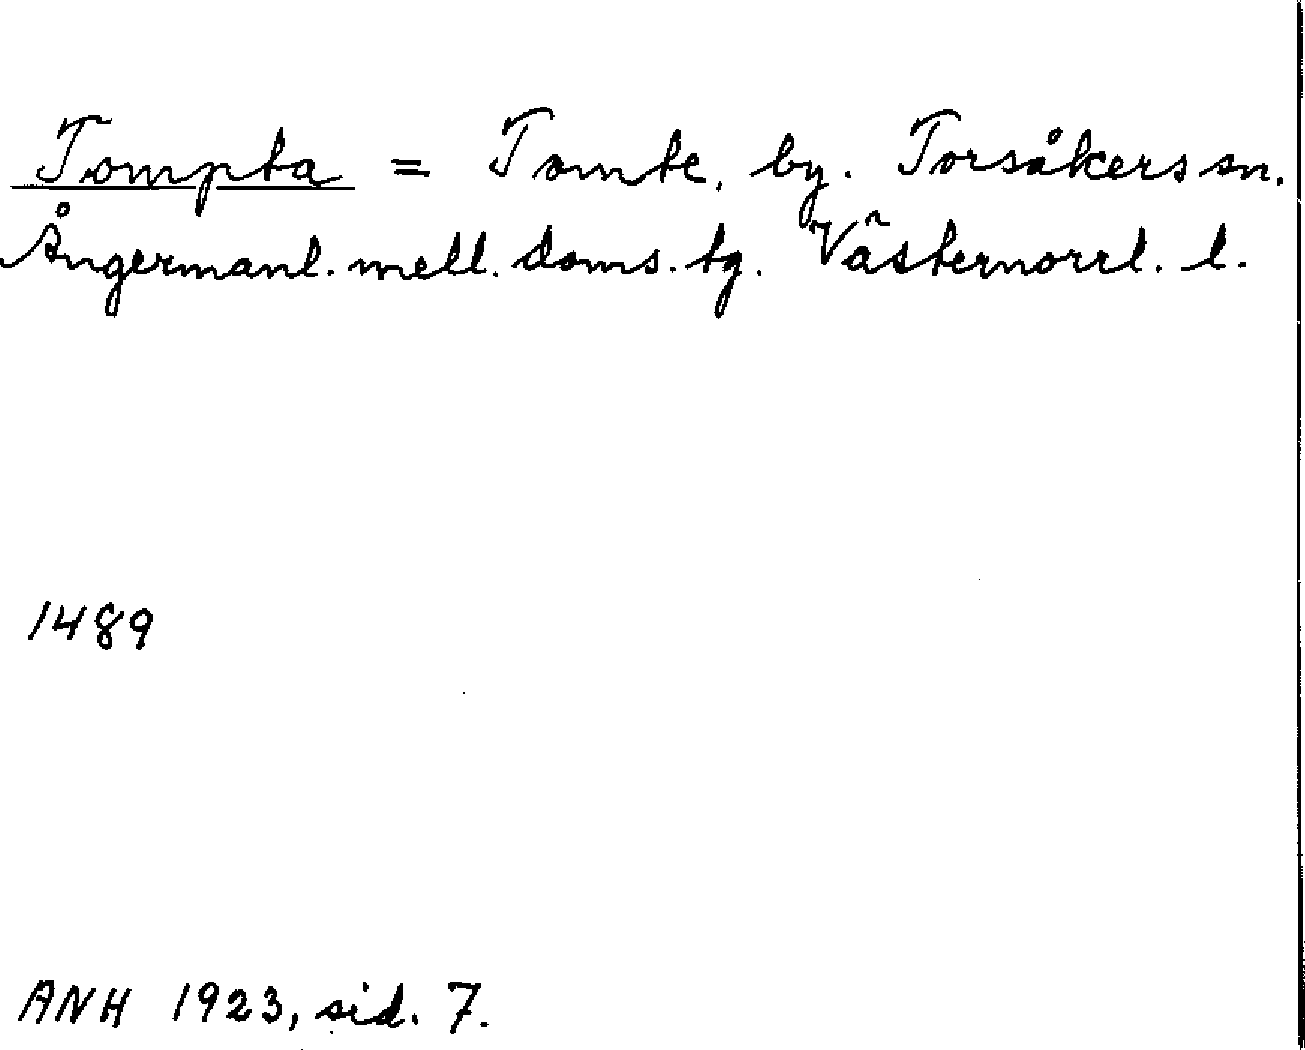 Tompta = Tomte, by. Torsåkers sn.
Ångermanl. mell. doms. tg. Västernorrl. l.
1489
ANH 1923, sid. 7.